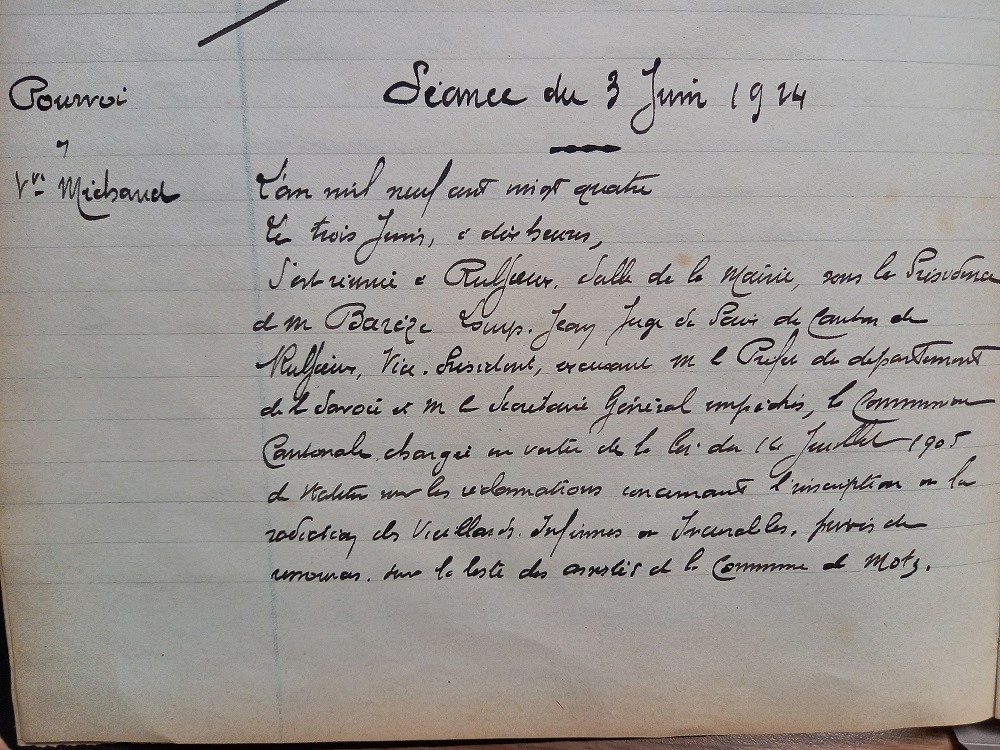 Pourvoi
Vve Michaud
Séance du 3 Juin 1924
L'an mil neuf cent vingt quatre
Le trois Juin, à dix heures,
s'est réunie à Ruffieux, Salle de la Mairie, sous la Présidence
de M Barèze Louis-Jean Juge de Paix du Canton de
Ruffieux, Vice-Président, excusant M le Préfet du département
de la Savoie et M le Secrétaire Général empêchés, la Commission
Cantonale chargée en vertu de la loi du 14 Juillet 1905
de statuer sur les réclamations concernant l'inscription ou la
radiation des Vieillards, Infirmes ou Incurables, privés de
ressources, sur la liste des assistés de la Commune de Motz.